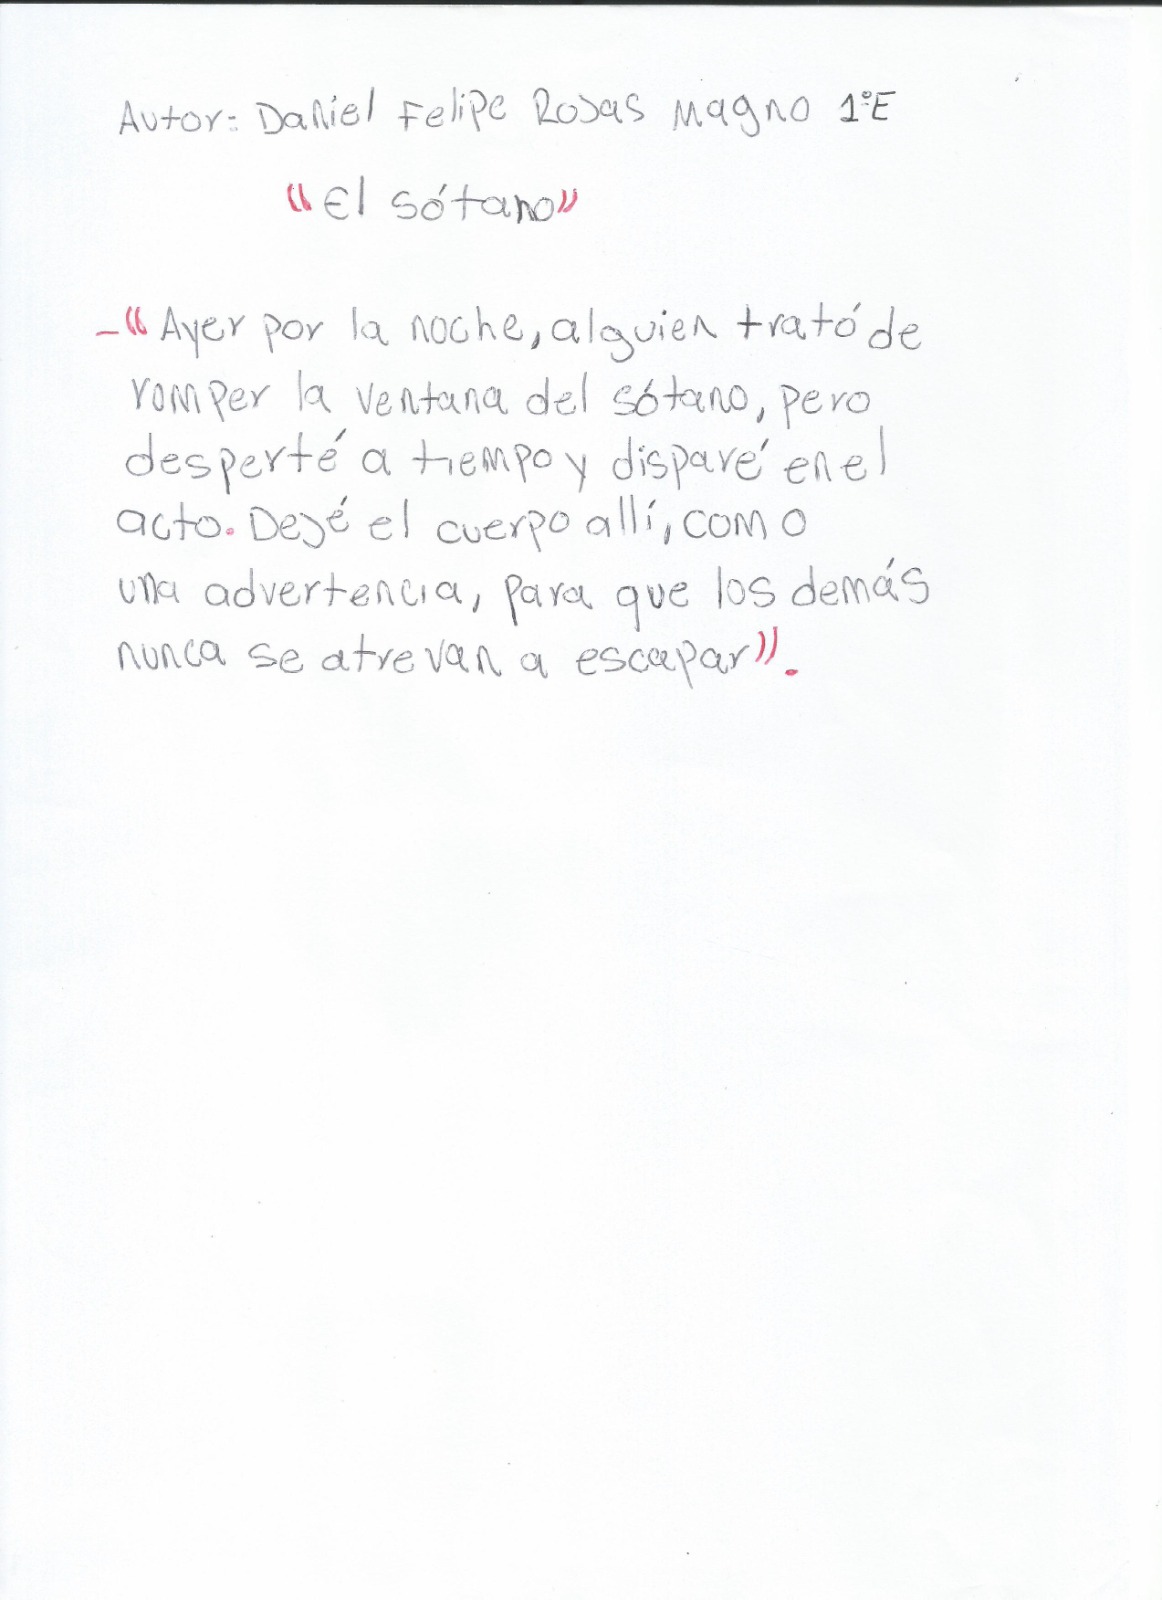 Autor: Daniel Felipe Rosas Magno 1°E
"El sótano"
-"Ayer por la noche, alguien trató de
romper la ventana del sótano, pero
desperté a tiempo y disparé en el
acto. Dejé el cuerpo allí, como
una advertencia, para que los demás
nunca se atrevan a escapar".